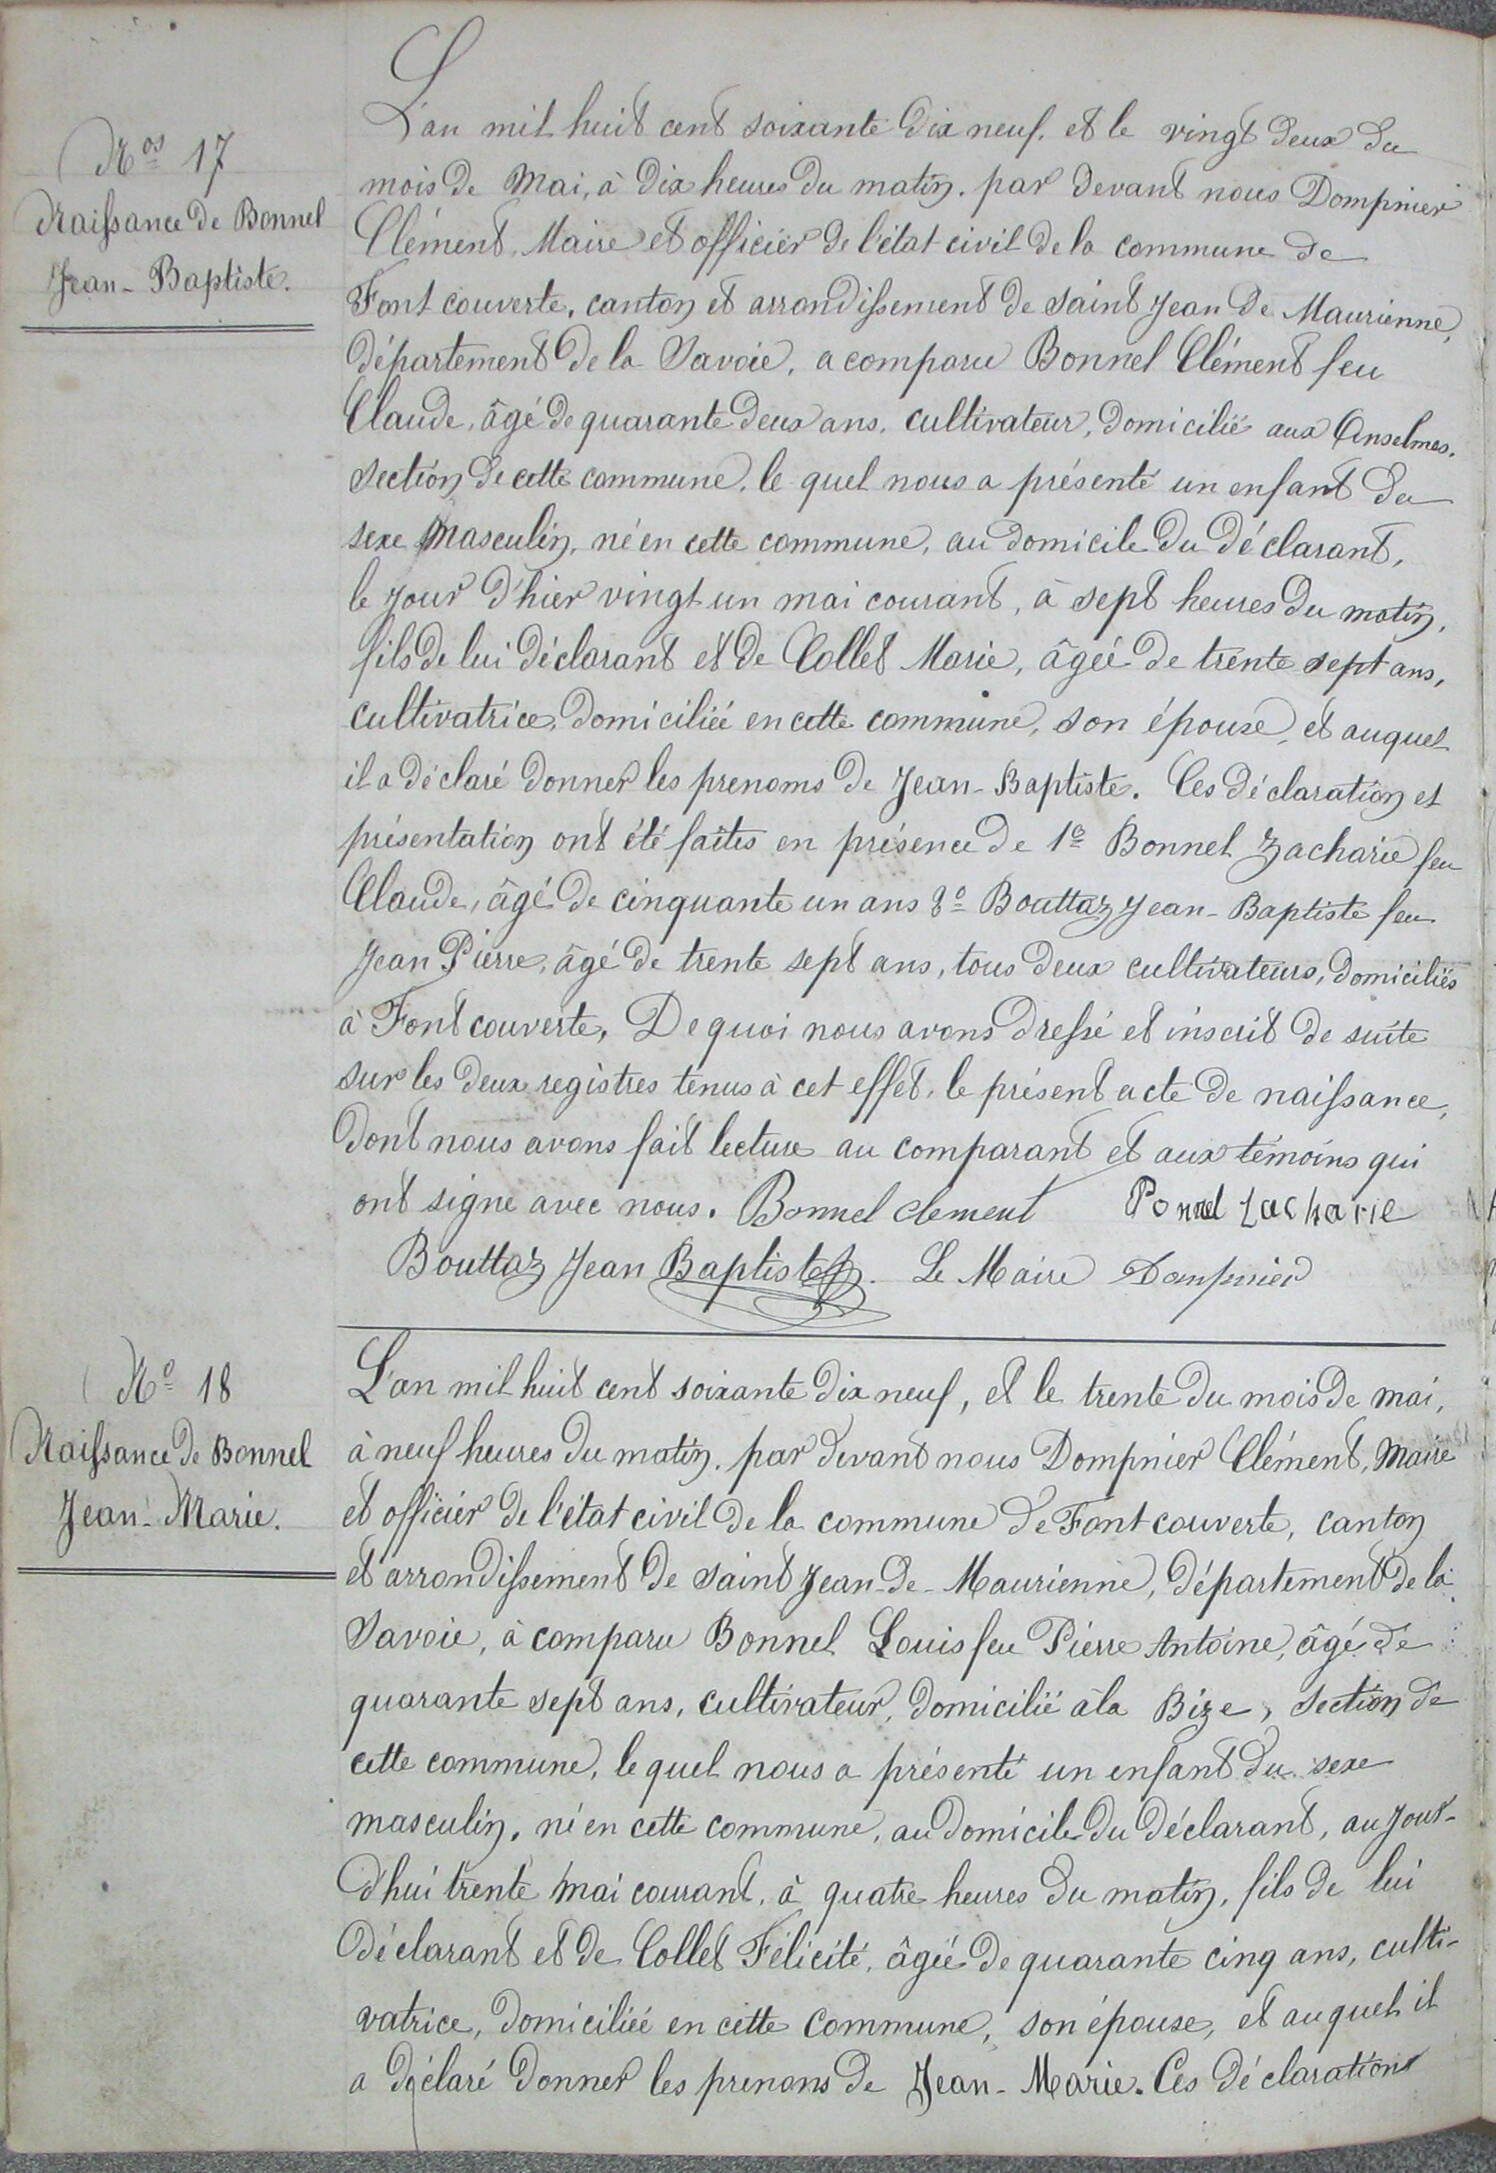 Nos 17
Naissance de Bonnel
Jean-Baptiste.
L'an mil huit cent soixante dix neuf. et le vingt deux du
mois de Mai, à dix heures du matin. par devant nous Dompnier
Clément, Maire et officier de l'état civil de la commune de
Font couverte, canton et arrondissement de saint Jean de Maurienne,
département de la Savoie, a comparu Bonnel Clément feu
Claude, âgé de quarante deux ans, cultivateur, domicilié aux Anselmes.
section de cette commune, le quel nous a présenté un enfant du
sexe Masculin, né en cette commune, au domicile du déclarant,
le jour d'hier vingt un mai courant, à sept heures du matin,
fils de lui déclarant et de Collet Marie, âgée de trente sept ans,
cultivatrice, domiciliée en cette commune, son épouse, et auquel
il a déclaré donner les prenoms de Jean-Baptiste. Ces déclaration et
présentation ont été faites en présence de 1o Bonnel Zacharie feu
Claude, âgé de cinquante un ans 2o Bouttaz Jean-Baptiste feu
Jean Pierre, âgé de trente sept ans, tous deux cultivateurs, domiciliés
à Font couverte, De quoi nous avons dressé et inscrit de suite
sur les deux registres tenus à cet effet, le présent acte de naissance,
dont nous avons fait lecture au comparant et aux témoins qui
ont signé avec nous. Bonnel clement Ponnel Zacharie
Bouttaz Jean Baptiste. Le Maire Dompnier
No 18
Naissance de Bonnel
Jean-Marie.
L'an mil huit cent soixante dix neuf, et le trente du mois de mai,
à neuf heures du matin, par devant nous Dompnier Clément, Maire
et officier de l'état civil de la commune de Font couverte, canton
et arrondissement de saint Jean-de-Maurienne, département de la
Savoie, à comparu Bonnel Louis feu Pierre Antoine, âgé de
quarante sept ans, cultivateur, domicilié à la Bize, section de
cette commune, le quel nous a présenté un enfant du sexe
masculin, né en cette commune, au domicile du déclarant, au jour-
d'hui trente mai courant, à quatre heures du matin, fils de lui
déclarant et de Collet Félicité, âgée de quarante cinq ans, culti-
vatrice, domiciliée en cette commune, son épouse, et auquel il
a déclaré donner les prenons de Jean-Marie. Ces déclaration